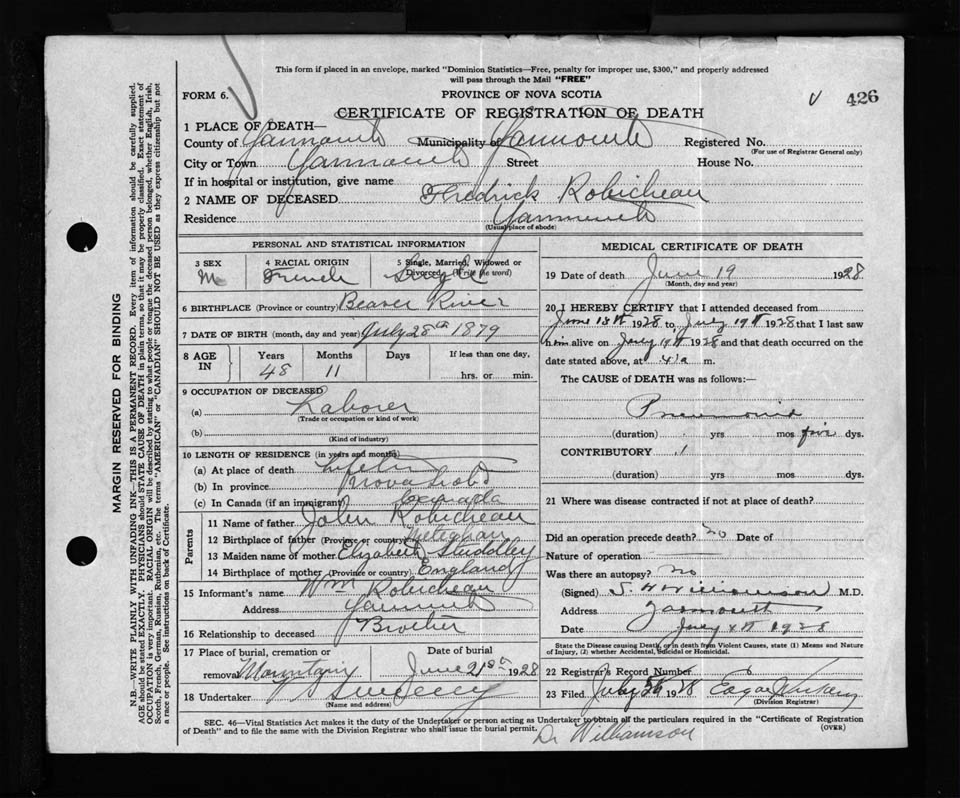 This form if placed in an envelope, marked "Dominion Statistics—Free, penalty for improper use, $300," and properly addressed
will pass through the Mail "FREE"
FORM 6. PROVINCE OF NOVA SCOTIA 426
CERTIFICATE OF REGISTRATION OF DEATH
1 PLACE OF DEATH—
County of Yarmouth Municipality of Yarmouth Registered No.
(For use of Registrar General only)
City or Town Yarmouth Street House No.
If in hospital or institution, give name
2 NAME OF DECEASED Fredrick Robicheau
Residence Yarmouth
(Usual place of abode)
PERSONAL AND STATISTICAL INFORMATION
3 SEX 4 RACIAL ORIGIN 5 Single, Married, Widowed or Divorced (Write the word)
M French Single
6 BIRTHPLACE (Province or country) Beaver River
7 DATE OF BIRTH (month, day and year) July 28th 1879
8 AGE IN Years Months Days If less than one day,
48 11 hrs. or min.
9 OCCUPATION OF DECEASED
(a) Laborer
(Trade or occupation or kind of work)
(b)
(Kind of industry)
10 LENGTH OF RESIDENCE (in years and months)
(a) At place of death
(b) In province Nova Scotia
(c) In Canada (if an immigrant) Canada
Parents
11 Name of father John Robicheau
12 Birthplace of father (Province or country)
13 Maiden name of mother Elizabeth Studdley
14 Birthplace of mother (Province or country) England
15 Informant's name Wm Robicheau
Address Yarmouth
16 Relationship to deceased Brother
17 Place of burial, cremation or removal Date of burial
June 21st 1928
18 Undertaker Sweeney
(Name and address)
MEDICAL CERTIFICATE OF DEATH
19 Date of death June 19 1928
(Month, day and year)
20 I HEREBY CERTIFY that I attended deceased from
June 18th 1928 to July 19th 1928 that I last saw
him alive on July 19th 1928 and that death occurred on the
date stated above, at 4 a m.
The CAUSE of DEATH was as follows:—
Pneumonia
(duration) yrs mos five dys.
CONTRIBUTORY
(duration) yrs. mos. dys.
21 Where was disease contracted if not at place of death?
Did an operation precede death? no Date of
Nature of operation
Was there an autopsy? no
(Signed) Williamson M.D.
Address Yarmouth
Date 1928
State the Disease causing Death, or in death from Violent Causes, state (1) Means and Nature of Injury, (2) whether Accidental, Suicidal or Homicidal.
22 Registrar's Record Number
23 Filed July 1928 Edgar
(Division Registrar)
SEC. 46—Vital Statistics Act makes it the duty of the Undertaker or person acting as Undertaker to obtain all the particulars required in the "Certificate of Registration
of Death" and to file the same with the Division Registrar who shall issue the burial permit. (OVER)
Dr Williamson
MARGIN RESERVED FOR BINDING
N.B.—WRITE PLAINLY WITH UNFADING INK—THIS IS A PERMANENT RECORD. Every item of information should be carefully supplied.
AGE should be stated EXACTLY. PHYSICIANS should STATE CAUSE OF DEATH in plain terms, so that it may be properly classified. Exact statement of
OCCUPATION is very important. RACIAL ORIGIN will be described by stating to what people or tongue the deceased person belonged, whether English, Irish,
Scotch, French, German, Russian, Ruthenian, etc. The terms "AMERICAN" or "CANADIAN" SHOULD NOT BE USED as they express citizenship but not
a race or people. See instructions on back of Certificate.